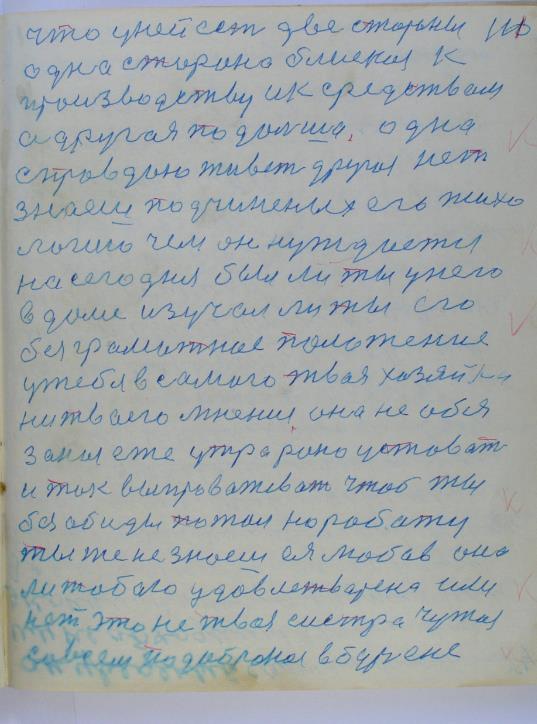 что у ней сет две стороны 110
одна сторона блиская к
производству и к средствам
а другая подальша, одна
справдою живет другая нет
знаеш подчиненых его психо
логию чем он нуждается
на сегодня был ли ты у него
в доме изучал ли ты его
без грамотное положение
у тебя в самого твая хозяйка
ни твоего мнения она не обя
зана еже утра рано устават
и так выпроваживат чтоб ты
без обиды пошол на работу
ты же не знаеш ея любов она
ли тобаю удовлетварена или
нет это не твая систра чужая
совсем подобраная в бурене